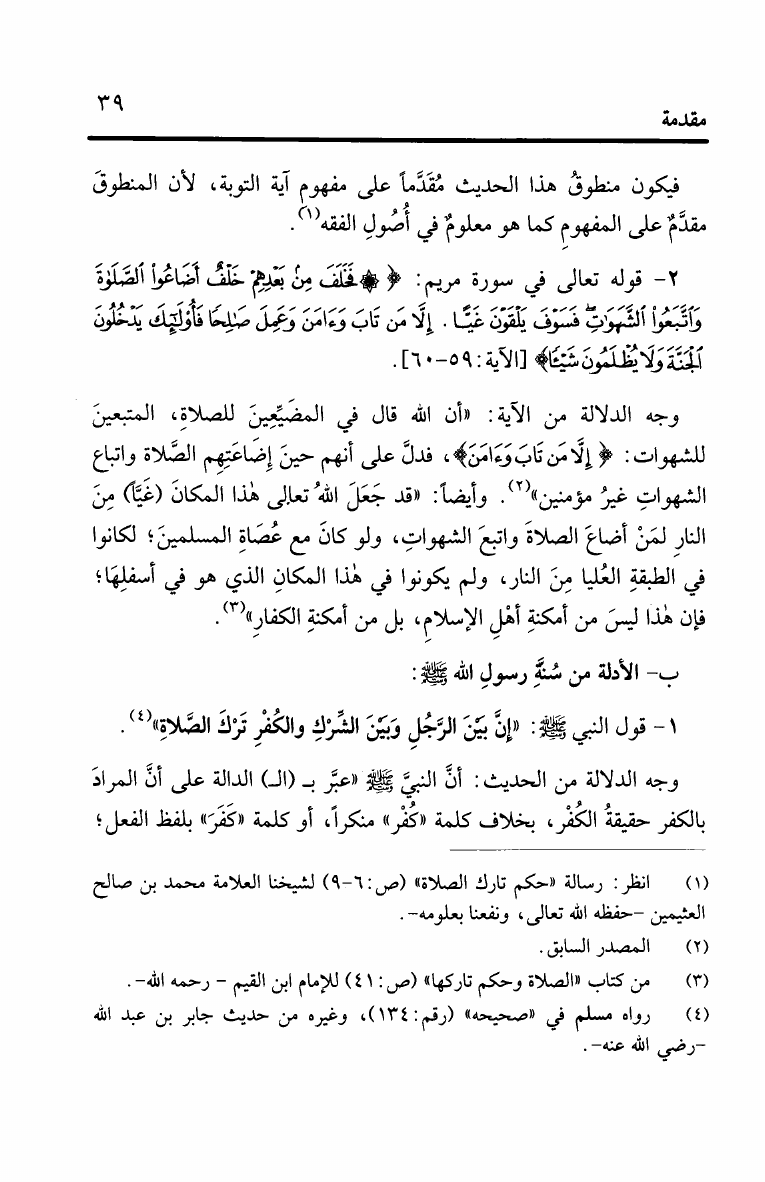 ٣٩
مقدمة
فيكون منطوقُ هذا الحديث مُقَدَّماً على مفهومِ آية التوبة، لأن المنطوقَ
مقدَّمٌ على المفهومِ كما هو معلومٌ في أُصُولِ الفقه(١).
٢- قوله تعالى في سورة مريم: ﴿ ۞ فَخَلَفَ مِنۢ بَعْدِهِمْ خَلْفٌ أَضَاعُوا۟ ٱلصَّلَوٰةَ
وَٱتَّبَعُوا۟ ٱلشَّهَوَٰتِۖ فَسَوْفَ يَلْقَوْنَ غَيًّا . إِلَّا مَن تَابَ وَءَامَنَ وَعَمِلَ صَٰلِحًا فَأُو۟لَٰٓئِكَ يَدْخُلُونَ
ٱلْجَنَّةَ وَلَا يُظْلَمُونَ شَيْـًٔا﴾ [الآية: ٥٩-٦٠].
وجه الدلالة من الآية: «أن الله قال في المضَيِّعِينَ للصلاةِ، المتبعينَ
للشهوات: ﴿ إِلَّا مَن تَابَ وَءَامَنَ﴾، فدلَّ على أنهم حينَ إضَاعَتِهِم الصَّلاةَ واتباعِ
الشهواتِ غيرُ مؤمنين»(٢). وأيضاً: «قد جَعَلَ اللهُ تعالى هٰذا المكانَ (غَيَّاً) مِنَ
النارِ لمَنْ أضاعَ الصلاةَ واتبعَ الشهواتِ، ولو كانَ مع عُصَاةِ المسلمينَ؛ لكانوا
في الطبقةِ العُليا مِنَ النار، ولم يكونوا في هٰذا المكانِ الذي هو في أسفلِهَا؛
فإن هٰذا ليسَ من أمكنةِ أهْلِ الإسلامِ، بل من أمكنةِ الكفارِ»(٣).
ب- الأدلة من سُنَّةِ رسولِ الله ﷺ:
١- قول النبي ﷺ: «إِنَّ بَيْنَ الرَّجُلِ وَبَيْنَ الشِّرْكِ والكُفْرِ تَرْكَ الصَّلاةِ»(٤).
وجه الدلالة من الحديث: أنَّ النبيَّ ﷺ «عبَّر بـ (الـ) الدالة على أنَّ المرادَ
بالكفر حقيقةُ الكُفْر، بخلاف كلمة «كُفْر» منكراً، أو كلمة «كَفَرَ» بلفظ الفعل؛
(١) انظر: رسالة «حكم تارك الصلاة» (ص: ٦-٩) لشيخنا العلامة محمد بن صالح
العثيمين -حفظه الله تعالى، ونفعنا بعلومه-.
(٢) المصدر السابق.
(٣) من كتاب «الصلاة وحكم تاركها» (ص: ٤١) للإمام ابن القيم - رحمه الله-.
(٤) رواه مسلم في «صحيحه» (رقم: ١٣٤)، وغيره من حديث جابر بن عبد الله
-رضي الله عنه-.